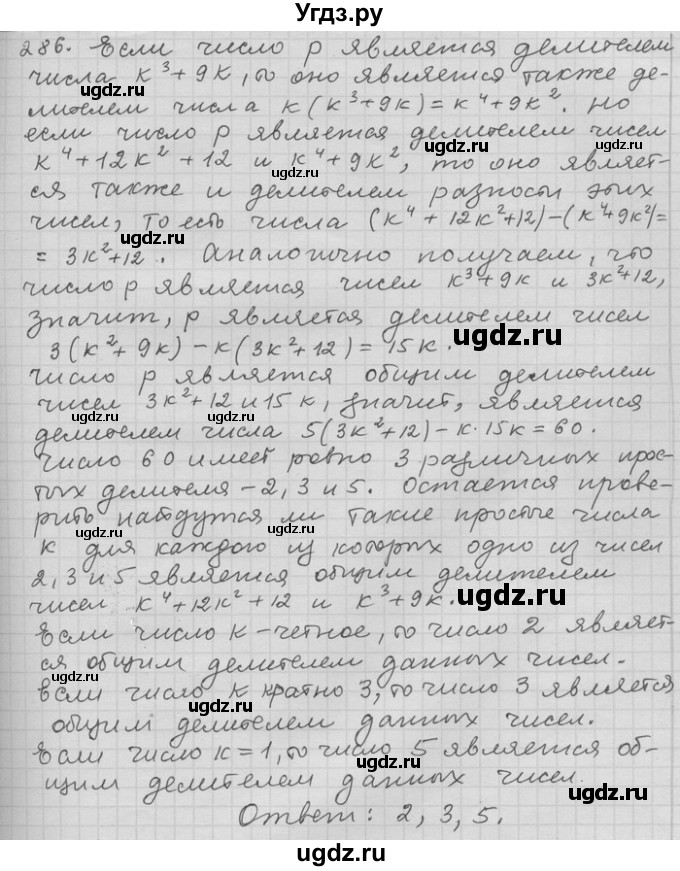 Угдз.ру
286. Если число p является делителем
числа k³+9k, то оно является также де-
лителем числа k(k³+9k)=k⁴+9k². Но
если число p является делителем чисел
k⁴+12k²+12 и k⁴+9k², то оно являет-
ся также и делителем разности этих
чисел, то есть числа (k⁴+12k²+12)-(k⁴+9k²)=
= 3k²+12. Аналогично получаем, что
число p является чисел k³+9k и 3k²+12,
значит, p является делителем чисел
3(k²+9k)-k(3k²+12)=15k.
Число p является общим делителем
чисел 3k²+12 и 15k, значит, является
делителем числа 5(3k²+12)-k·15k=60.
Число 60 имеет ровно 3 различных прос-
тых делителя - 2, 3 и 5. Остается прове-
рить найдутся ли такие простые числа
k для каждого из которых одно из чисел
2, 3 и 5 является общим делителем
чисел k⁴+12k²+12 и k³+9k.
Если число k-четное, то число 2 являет-
ся общим делителем данных чисел.
Если число k кратно 3, то число 3 является
общим делителем данных чисел.
Если число k=1, то число 5 является об-
щим делителем данных чисел.
Ответ: 2, 3, 5.
ugdz.ru